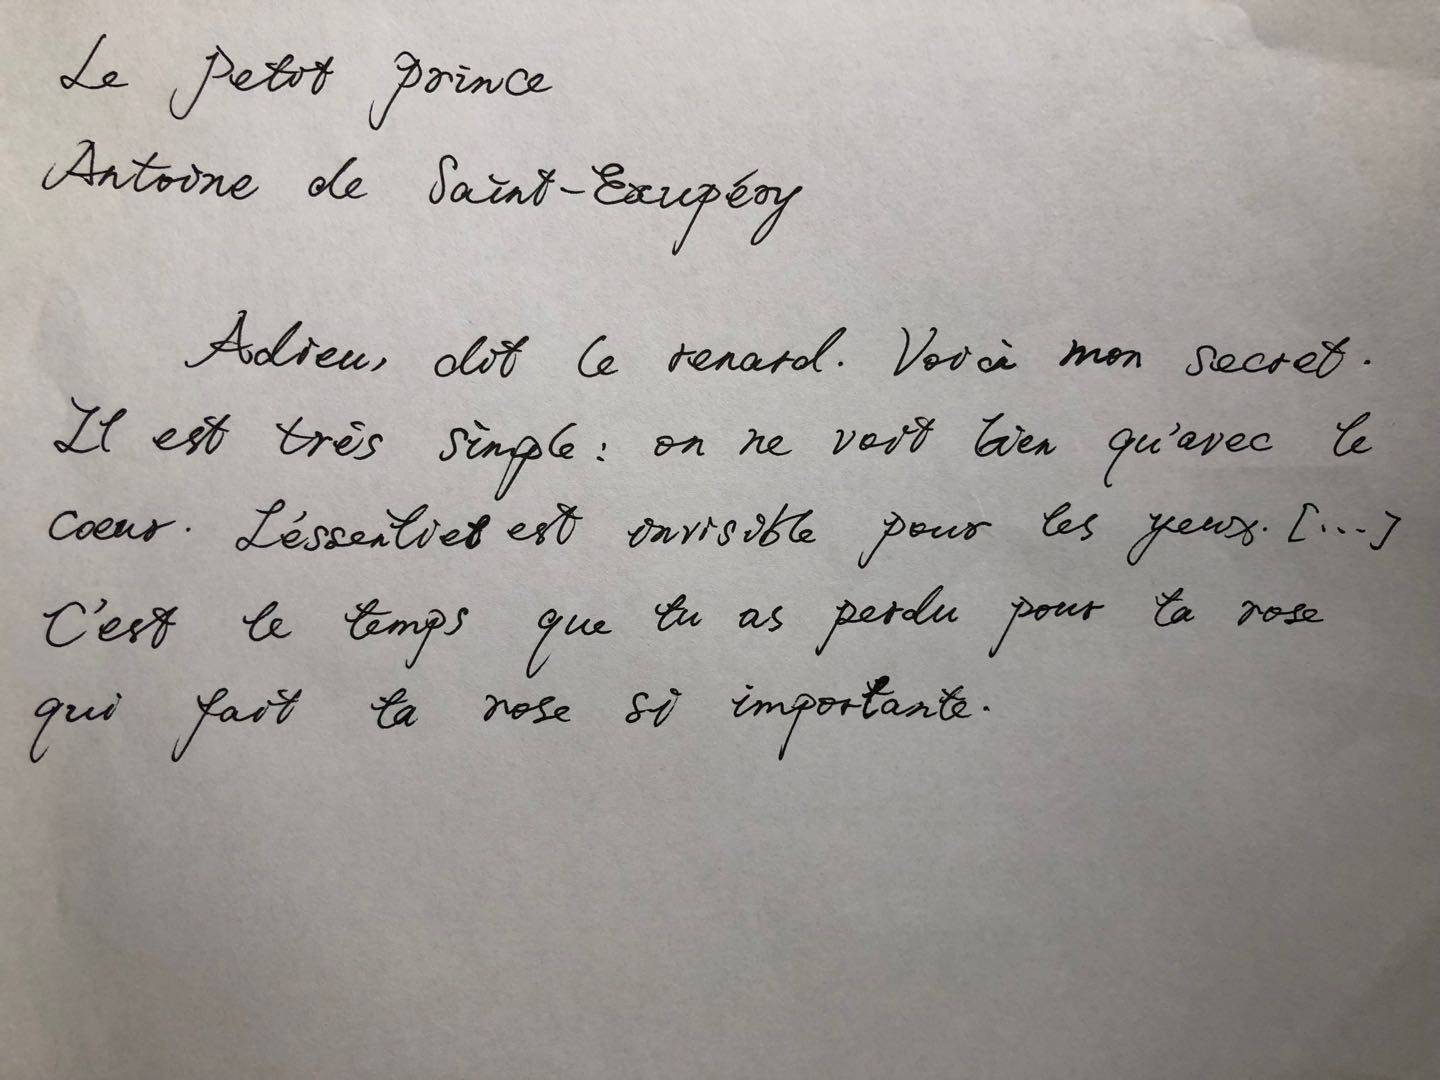 Le Petit Prince
Antoine de Saint-Exupéry
Adieu, dit le renard. Voià mon secret.
Il est très simple : on ne voit bien qu'avec le
coeur. L'éssentiel est invisible pour les yeux. [...]
C'est le temps que tu as perdu pour ta rose
qui fait ta rose si importante.